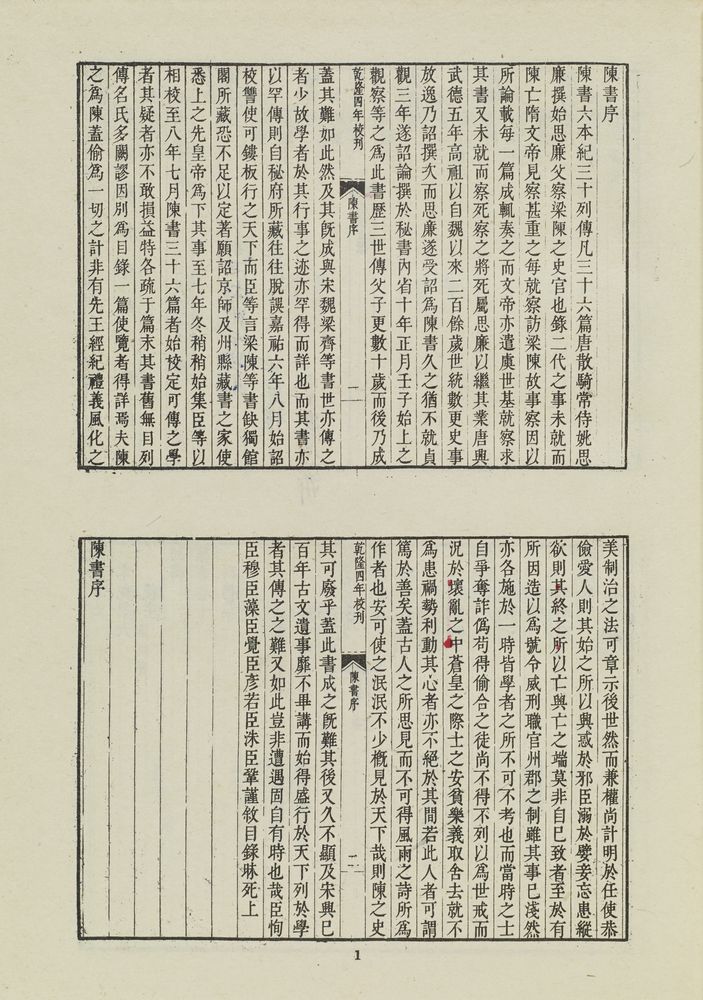 陳書序
陳書六本紀三十列傳凡三十六篇唐散騎常侍姚思
廉撰始思廉父察梁陳之史官也錄二代之事未就而
陳亡隋文帝見察甚重之每就察訪梁陳故事察因以
所論載每一篇成輒奏之而文帝亦遣虞世基就察求
其書又未就而察死察之將死屬思廉以繼其業唐興
武德五年高祖以自魏以來二百餘歲世統數更史事
放逸乃詔撰次而思廉遂受詔爲陳書久之猶不就貞
觀三年遂詔論撰於秘書內省十年正月壬子始上之
觀察等之爲此書歷三世傳父子更數十歲而後乃成
乾隆四年校刊
陳書序
一
蓋其難如此然及其旣成與宋魏梁齊等書世亦傳之
者少故學者於其行事之迹亦罕得而詳也而其書亦
以罕傳則自秘府所藏往往脫誤嘉祐六年八月始詔
校讐使可鏤板行之天下而臣等言梁陳等書缺獨館
閣所藏恐不足以定著願詔京師及州縣藏書之家使
悉上之先皇帝爲下其事至七年冬稍稍始集臣等以
相校至八年七月陳書三十六篇者始校定可傳之學
者其疑者亦不敢損益特各疏于篇末其書舊無目列
傳名氏多闕謬因別爲目錄一篇使覽者得詳焉夫陳
之爲陳蓋偷爲一切之計非有先王經紀禮義風化之
美制治之法可章示後世然而兼權尚計明於任使恭
儉愛人則其始之所以興惑於邪臣溺於嬖妾忘患縱
欲則其終之所以亡興亡之端莫非自已致者至於有
所因造以爲號令威刑職官州郡之制雖其事已淺然
亦各施於一時皆學者之所不可不考也而當時之士
自爭奪詐僞苟得偷合之徒尚不得不列以爲世戒而
況於壞亂之中蒼皇之際士之安貧樂義取舍去就不
爲患禍勢利動其心者亦不絕於其間若此人者可謂
篤於善矣蓋古人之所思見而不可得風雨之詩所爲
作者也安可使之泯泯不少槪見於天下哉則陳之史
乾隆四年校刊
陳書序
二
其可廢乎蓋此書成之旣難其後又久不顯及宋興已
百年古文遺事靡不畢講而始得盛行於天下列於學
者其傳之之難又如此豈非遭遇固自有時也哉臣恂
臣穆臣藻臣覺臣彥若臣洙臣鞏謹敘目錄昧死上
陳書序
1